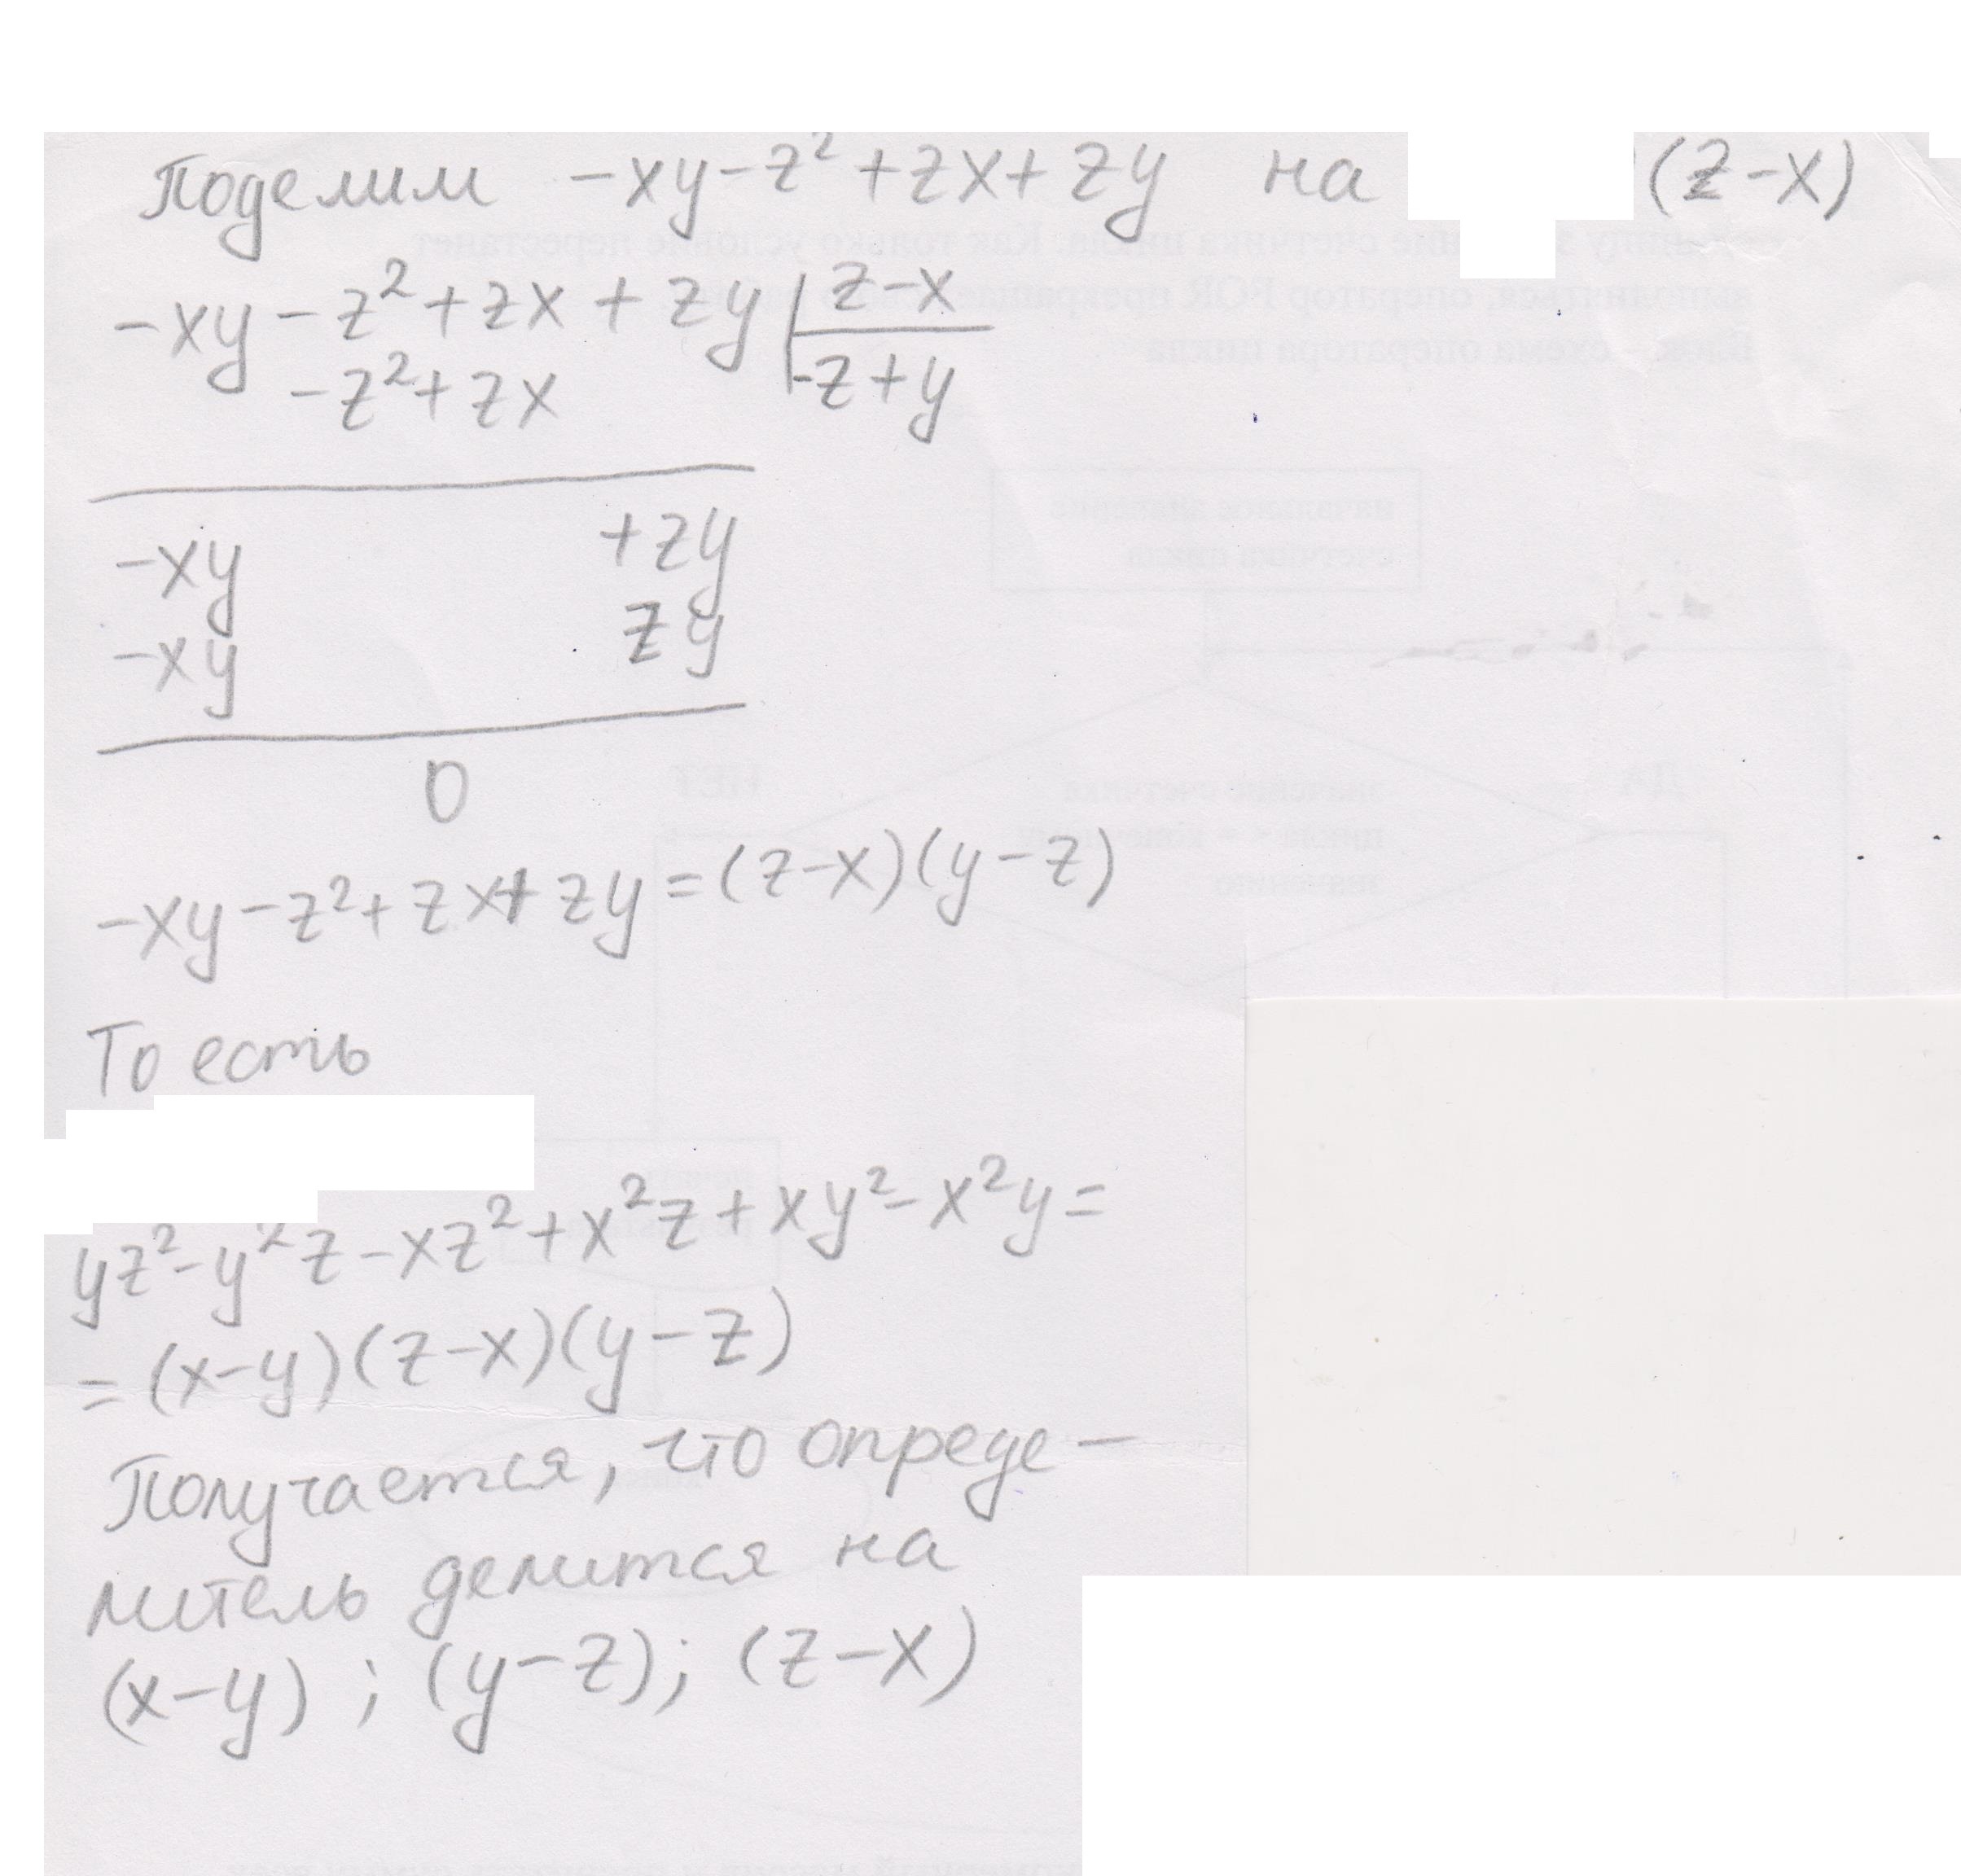 Поделим -xy-z²+zx+zy на (z-x)
-xy-z²+zx+zy z-x
-z²+zx -z+y
-xy +zy
-xy zy
0
-xy-z²+zx+zy=(z-x)(y-z)
То есть
yz²-y²z-xz²+x²z+xy²-x²y=
=(x-y)(z-x)(y-z)
Получается, что опреде-
литель делится на
(x-y); (y-z); (z-x)